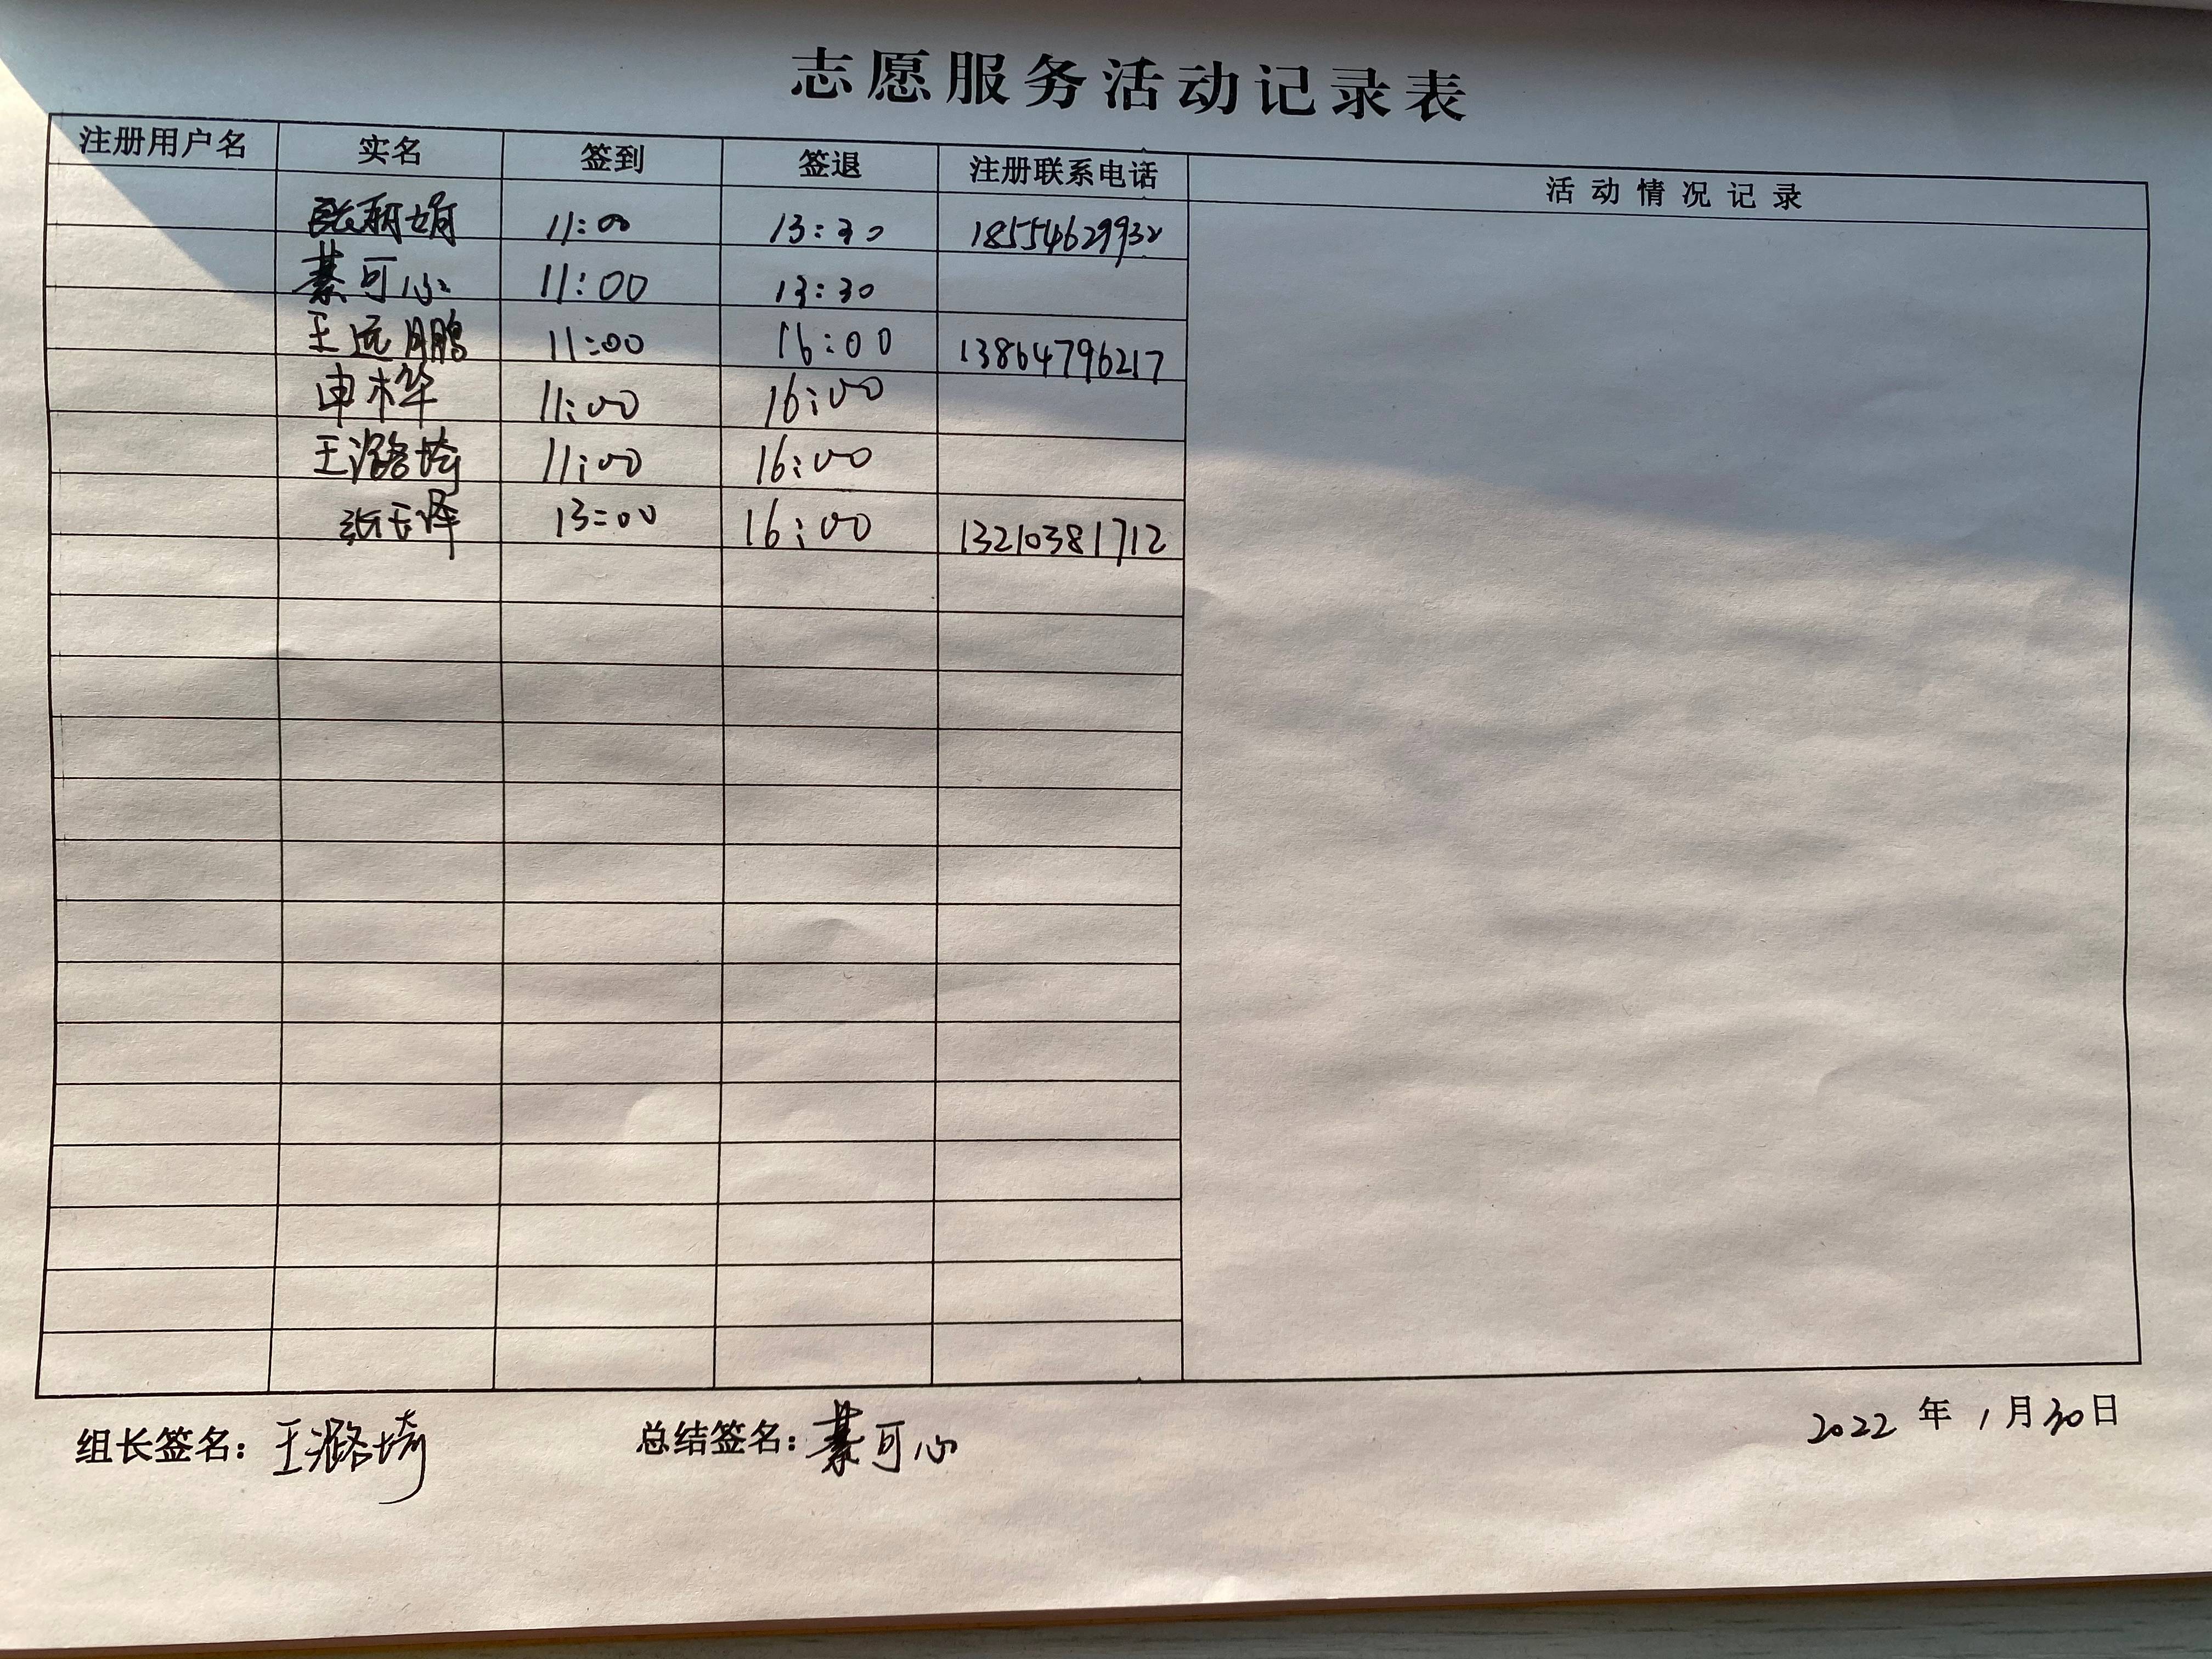 志愿服务活动记录表
注册用户名 实名 签到 签退 注册联系电话 活动情况记录
张丽娟 11:00 13:30 18554629932
綦可心 11:00 13:30
王远鹏 11:00 16:00 13864796217
申桦 11:00 16:00
王潞埼 11:00 16:00
张天泽 13:00 16:00 13210381712
组长签名：王潞埼 总结签名：綦可心 2022年1月30日